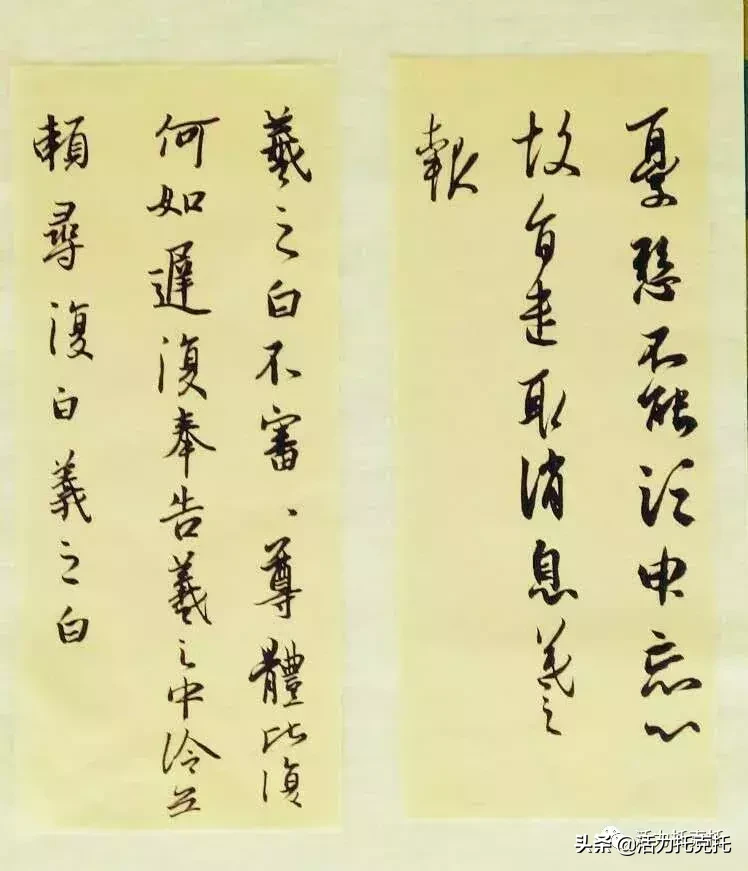 憂懸不能須臾忘心
故旨遣取消息羲之
報
羲之白不審、尊體比復
何如遲復奉告羲之中冷无
賴尋復白羲之白
活力托克托
头条 @活力托克托